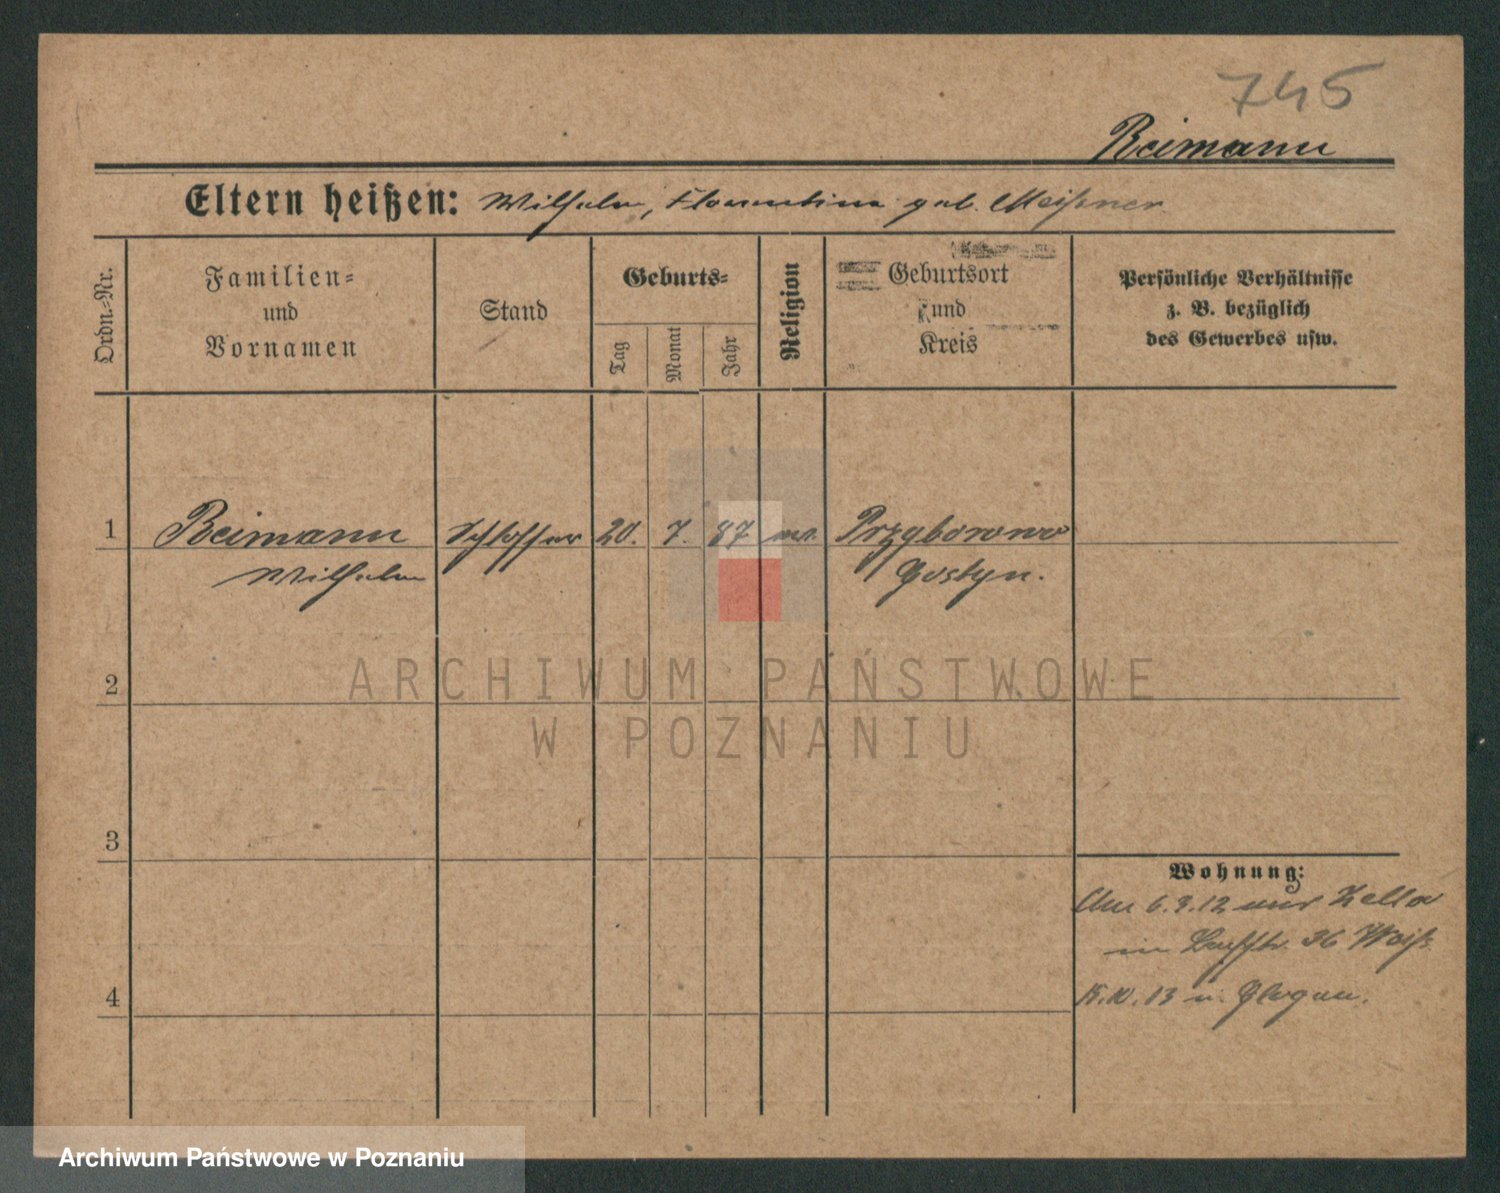 745
Reimann
Eltern heißen: Wilhelm, Florentine geb. Meißner
Ordn.-Nr.
Familien-
und
Vornamen
Stand
Geburts-
Tag
Monat
Jahr
Religion
Geburtsort
und
Kreis
Persönliche Verhältnisse
z. B. bezüglich
des Gewerbes usw.
1 Reimann Schlosser 20. 7. 87 ev. Przyborowo
Wilhelm Gostyn.
2
3
4
Wohnung:
Am 6.3.12 Zella
in 36
15.10.13 n. Glogau.
ARCHIWUM PAŃSTWOWE
W POZNANIU
Archiwum Państwowe w Poznaniu